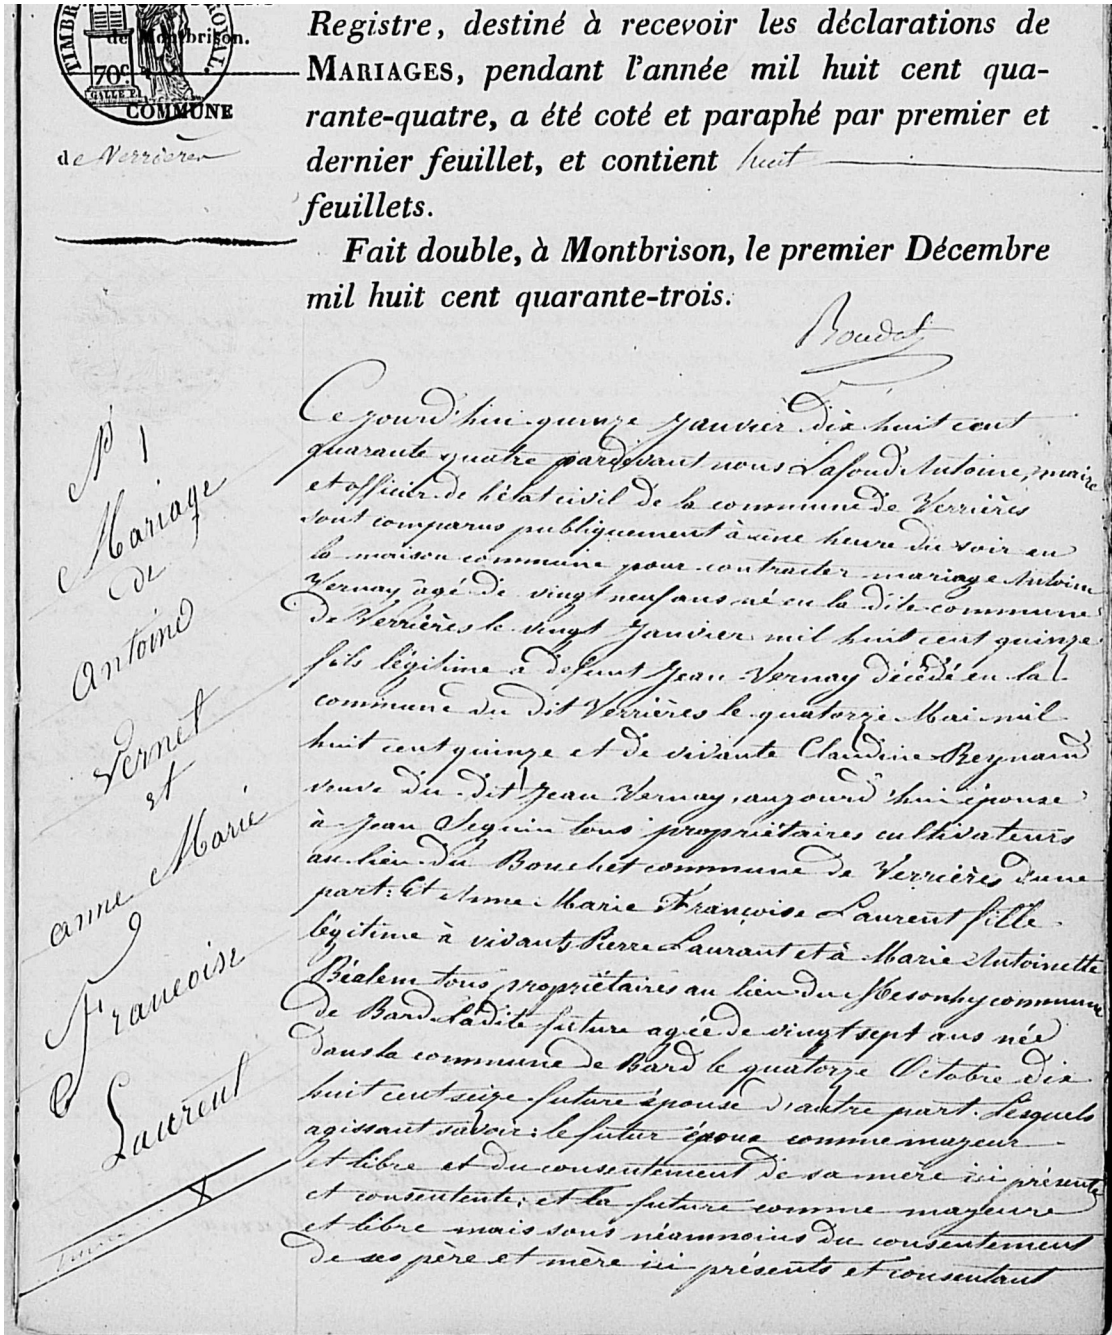 TIMBRE ROYAL.
de Montbrison.
70c
GALLE F.
COMMUNE
de Verrières
Registre, destiné à recevoir les déclarations de
MARIAGES, pendant l'année mil huit cent qua-
rante-quatre, a été coté et paraphé par premier et
dernier feuillet, et contient huit
feuillets.
Fait double, à Montbrison, le premier Décembre
mil huit cent quarante-trois.
N° 1
Mariage
de
Antoine
Vernet
et
anne Marie
Francoise
Laurent
Ce jourd'hui quinze Janvier dix huit cent
quarante quatre pardevant nous Lafond Antoine, maire
et officier de l'état civil de la commune de Verrières
sont comparus publiquement à une heure du soir en
la maison commune pour contracter mariage Antoine
Vernay âgé de vingt neuf ans né en la dite commune
de Verrières le vingt Janvier mil huit cent quinze
fils légitime à defunt Jean Vernay décédé en la
commune du dit Verrières le quatorze Mai mil
huit cent quinze et de vivante Claudine Reynaud
veuve du dit Jean Vernay, aujourd'hui épouse
à Jean Seguin tous propriétaires cultivateurs
au lieu du Bouchet commune de Verrières d'une
part. Et Anne Marie Francoise Laurent fille
légitime à vivant Pierre Laurant et à Marie Antoinette
Béalem tous propriétaires au lieu du commune
de Bard Ladite future agée de vingt sept ans née
dans la commune de Bard le quatorze Octobre dix
huit cent seize future épouse d'autre part. Lesquels
agissant savoir: le futur époux comme majeur
et libre et du consentement de sa mère ici présente
et consentente; et la future comme majeure
et libre mais sous néamnoins du consentement
de ses père et mère ici présents et consentant